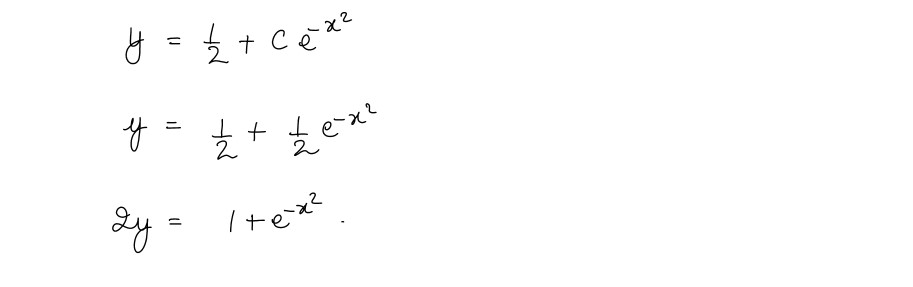 y = 1/2 + C e^{-x^2}
y = 1/2 + 1/2 e^{-x^2}
2y = 1 + e^{-x^2} .